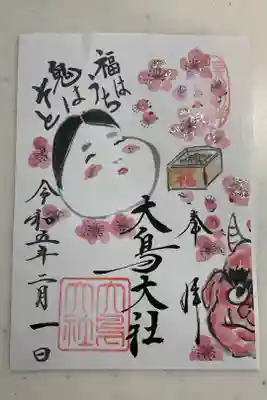 奉拝
大鳥大社
福はうち
鬼はそと
令和五年二月一日
福
大鳥
大社